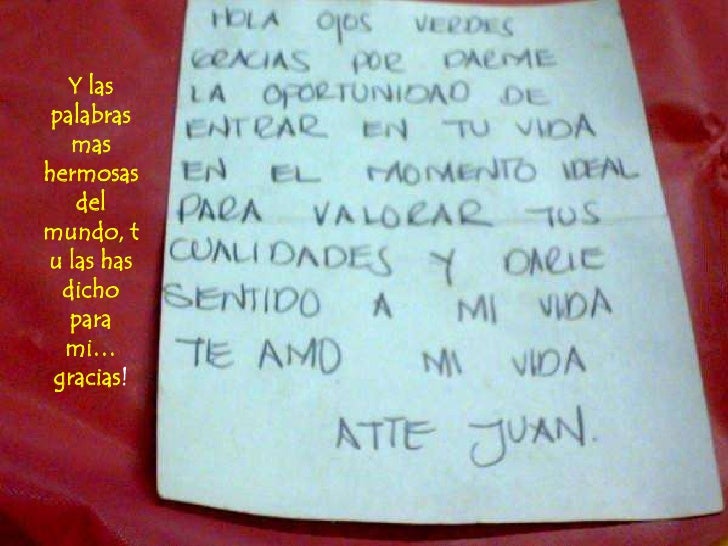 Y las
palabras
mas
hermosas
del
mundo, t
u las has
dicho
para
mi...
gracias!
HOLA OJOS VERDES
GRACIAS POR DARME
LA OPORTUNIDAD DE
ENTRAR EN TU VIDA
EN EL MOMENTO IDEAL
PARA VALORAR TUS
CUALIDADES Y DARLE
SENTIDO A MI VIDA
TE AMO MI VIDA
ATTE JUAN.